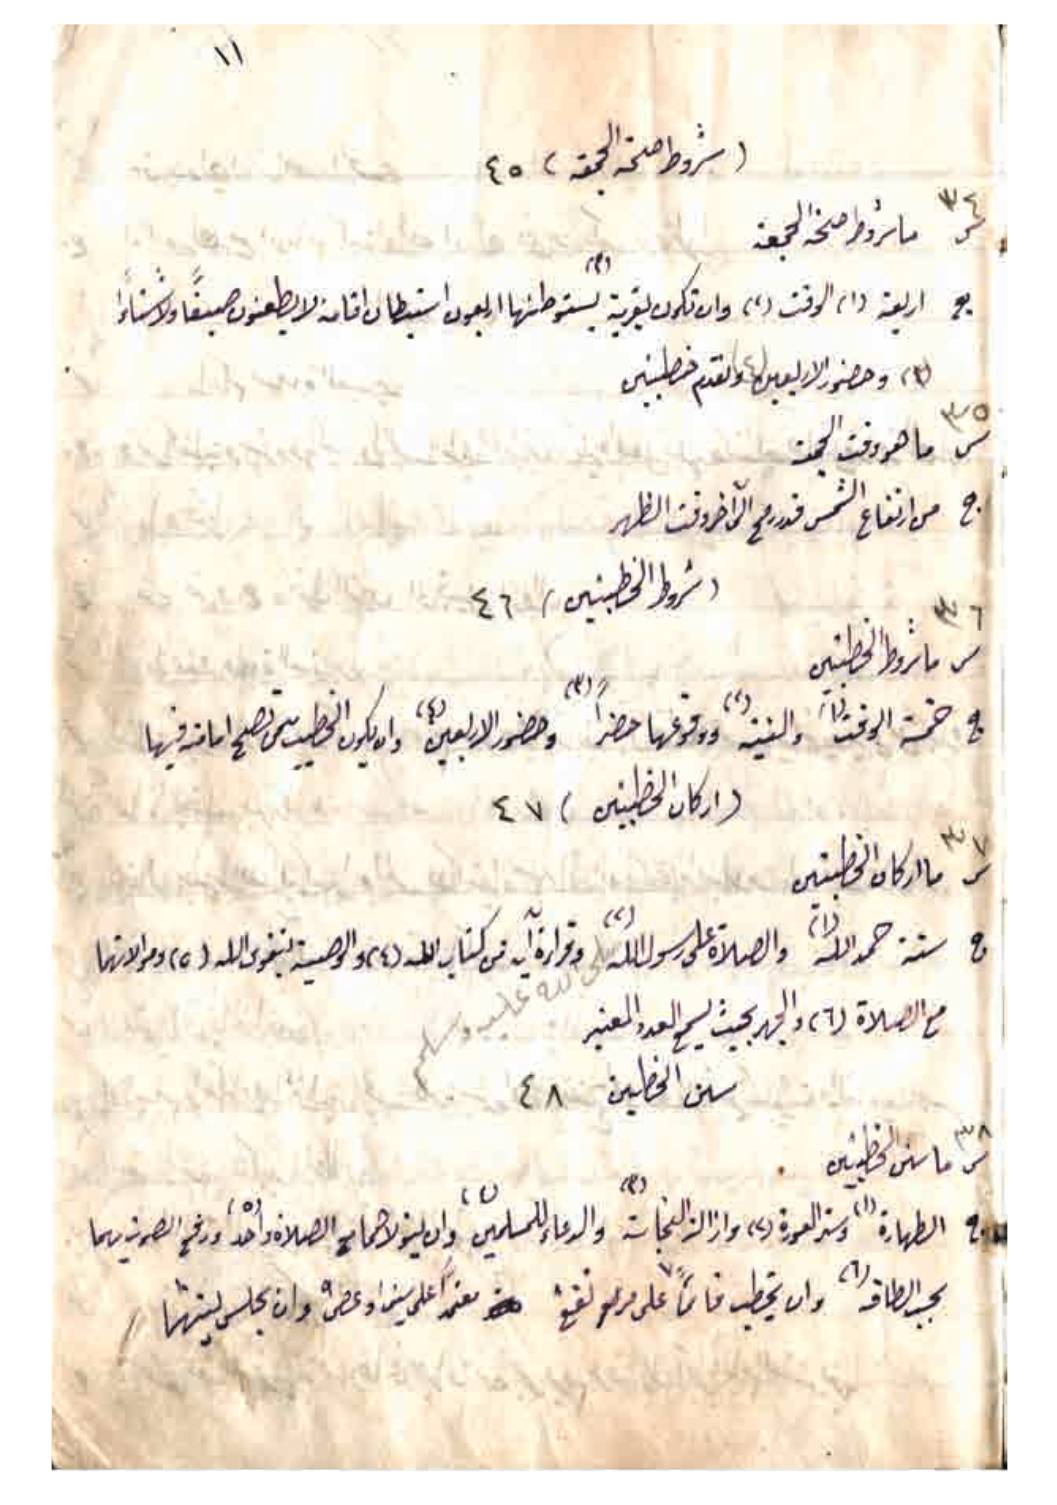 ١١
( شروط صحة الجمعة ) ٤٥
٣٤
س ما شروط صحة الجمعة
ج اربعة (١) الوقت (٢) وان تكون بقرية يستوطنها اربعون استيطان اقامة لا يظعنون صيفًا ولا شتاءً
(٣) وحضور الاربعين (٤) وتقدم خطبتين
٣٥
س ما هو وقت الجمعة
ج من ارتفاع الشمس قدر رمح الى آخر وقت الظهر
( شروط الخطبتين ) ٤٦
٣٦
س ما شروط الخطبتين
ج خمسة الوقت (١) والنية (٢) ووقوعها حضراً (٣) وحضور الاربعين (٤) وان يكون الخطيب ممن تصح امامته فيها
( اركان الخطبتين ) ٤٧
٣٧
س ما اركان الخطبتين
ج ستة حمد الله (١) والصلاة على رسول الله (٢) وقراءة آية من كتاب الله (٤) والوصية بتقوى الله (٥) وموالاتها
صلى الله عليه وسلم
مع الصلاة (٦) والجهر بحيث يسمع العدد المعتبر
سنن الخطبتين ٤٨
٣٨
س ما سنن الخطبتين
ج الطهارة (١) وستر العورة (٢) وازالة النجاسة (٣) والدعاء للمسلمين (٤) وان يتولاهما مع الصلاة واحد (٥) ورفع الصوت بهما
بحسب الطاقه (٦) وان يخطب قائمًا ٧ على مرتفع معتمداً على سيف او عصى ٩ وان يجلس بينهما